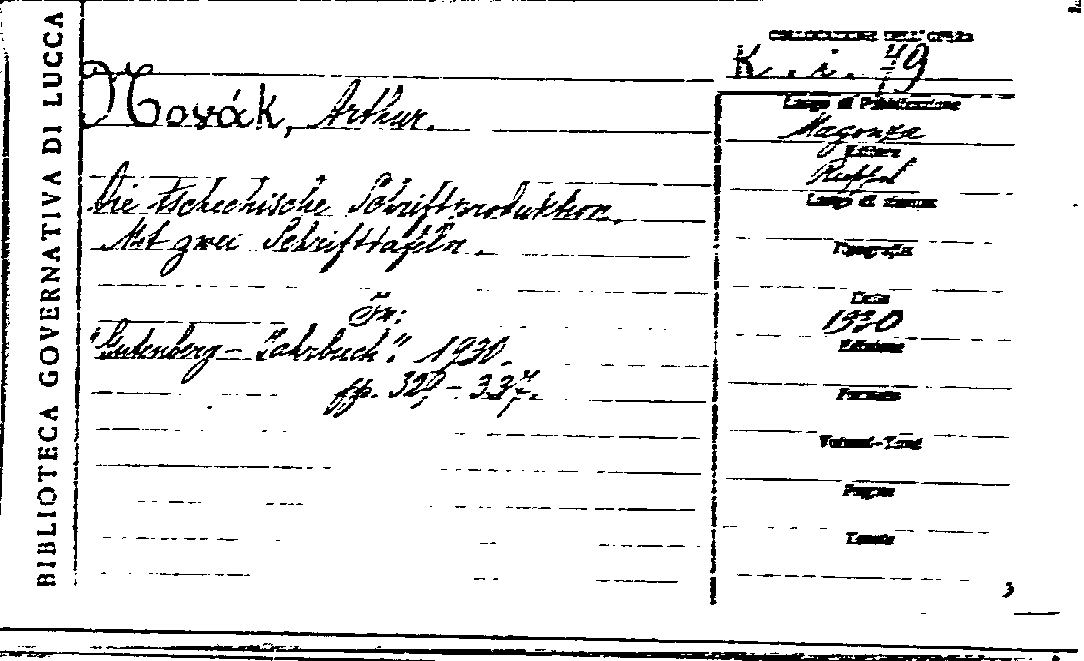 BIBLIOTECA GOVERNATIVA DI LUCCA
COLLOCAZIONE DELL'OPERA
K. i. 79
Novák, Arthur.
Die tschechische Schriftproduktion.
Mit zwei Schrifttafeln.
In:
"Gutenberg - Jahrbuch". 1930.
pp. 329 - 337.
Luogo di Pubblicazione
Magonza
Editore
Ruppel
Luogo di stampa
Tipografia
Data
1930
Edizione
Formato
Volumi-Tomi
Pagine